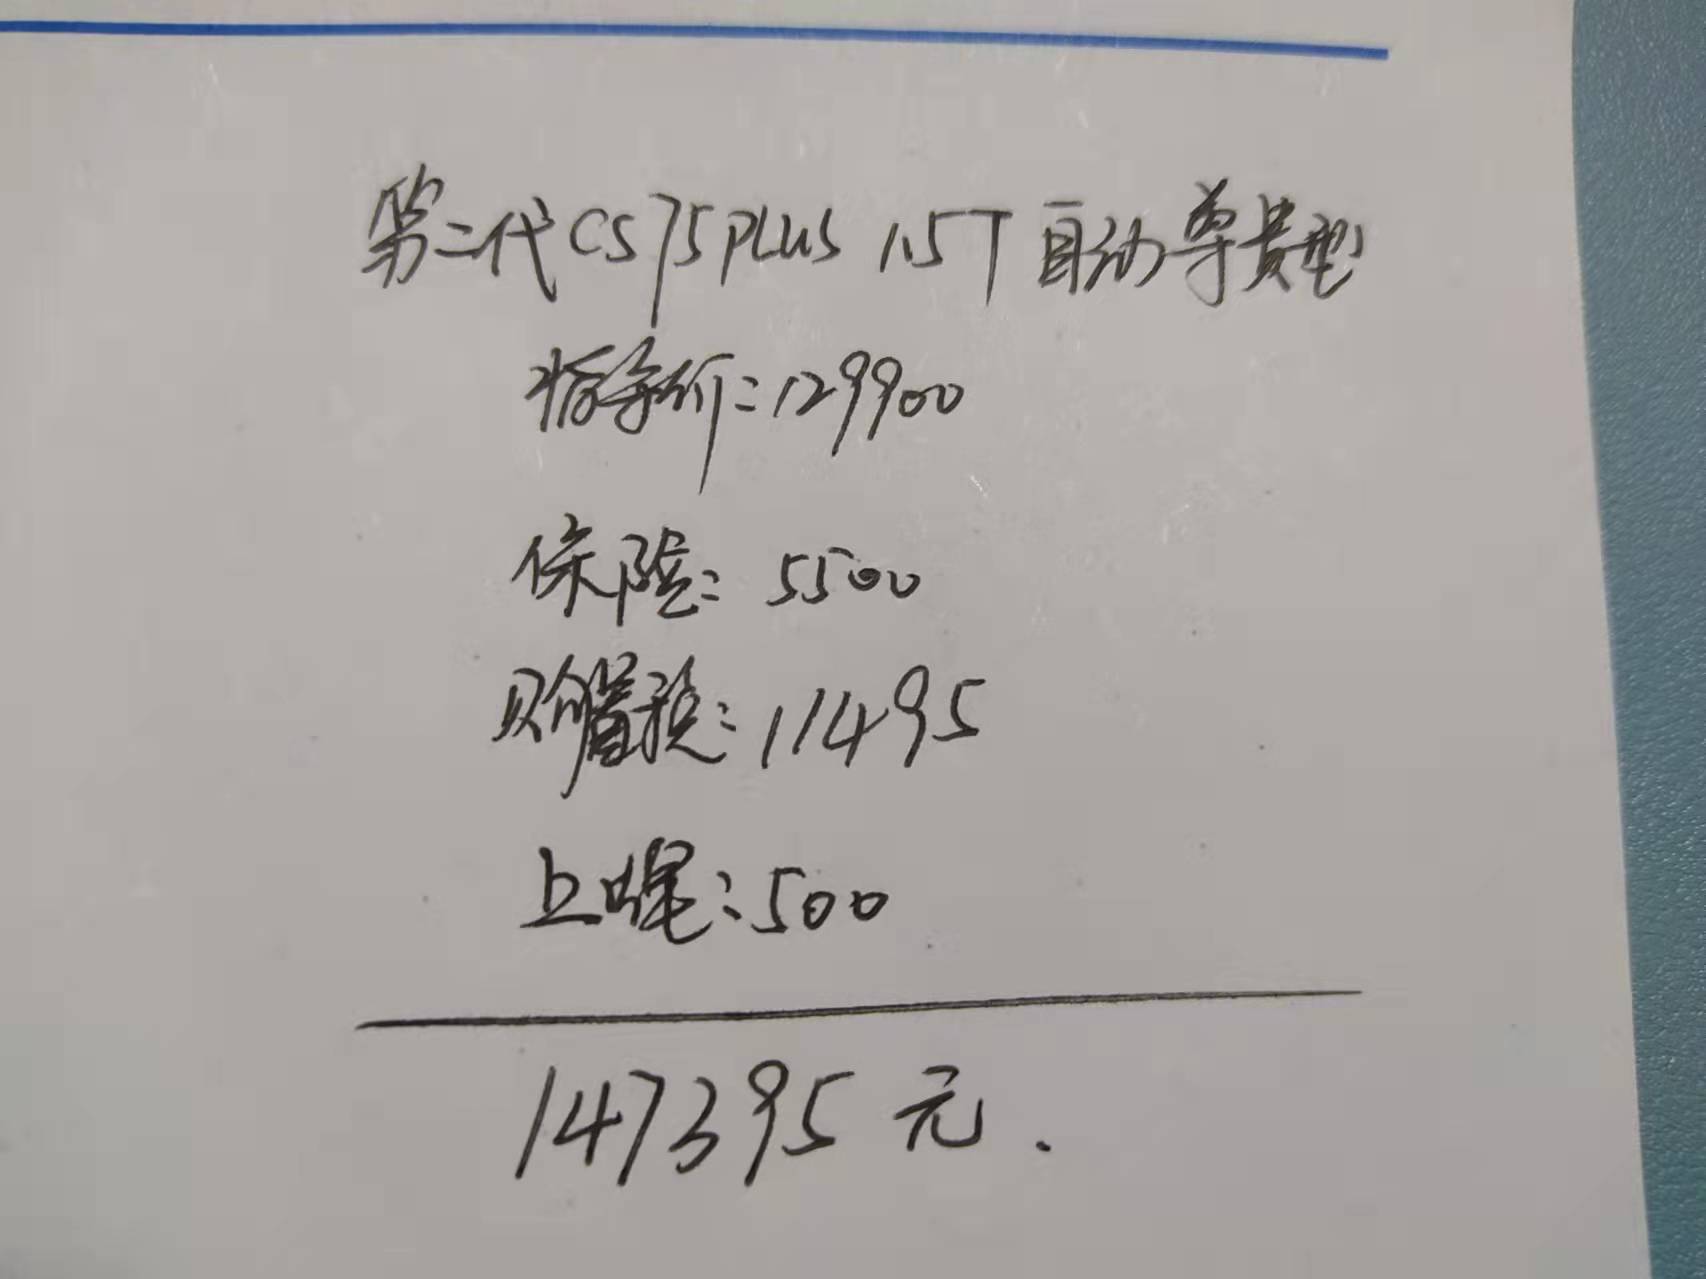 第二代CS75PLUS 1.5T 自动尊贵型
指导价:129900
保险:5500
购置税:11495
上牌:500
147395元.